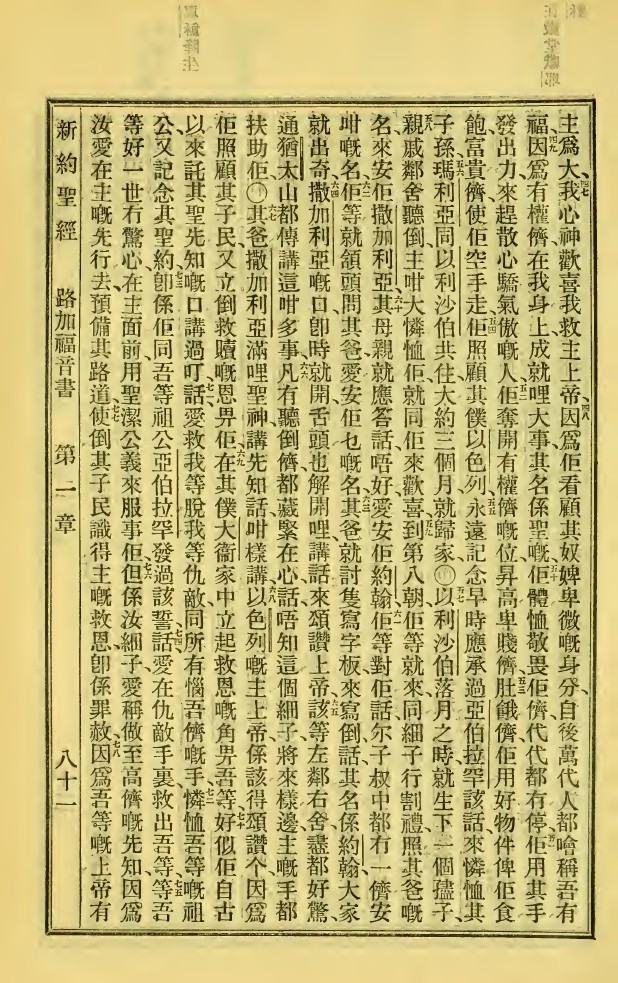 主爲大、四七我心神歡喜我救主上帝、四八因爲佢看顧其奴婢卑微嘅身分、自後萬代人都噲稱吾有
福、四九因爲有權儕在我身上成就哩大事、其名係聖嘅、五十佢體恤敬畏佢儕、代代都有停、五一佢用其手
發出力來、趕散心驕氣傲嘅人、五二佢奪開有權儕嘅位、昇高卑賤儕、五三肚餓儕佢用好物件俾佢食
飽、富貴儕使佢空手走、五四佢照顧其僕以色列、永遠記念早時應承過亞伯拉罕該話、五五來憐恤其
子孫、五六瑪利亞同以利沙伯共住大約三個月、就歸家、〇五七以利沙伯落月之時、就生下一個孻子、
五八親戚鄰舍聽倒主咁大憐恤佢、就同佢來歡喜、五九到第八朝、佢等就來同細子行割禮、照其爸嘅
名、來安佢撒加利亞、六十其母親就應答話、唔好、愛安佢約翰、六一佢等對佢話、尔子叔中都冇一儕安
咁嘅名、六二佢等就頷頭問其爸、愛安佢乜嘅名、六三其爸就討隻寫字板來、寫倒話、其名係約翰、大家
就出奇、六四撒加利亞嘅口即時就開、舌頭也解開哩、講話來頌讚上帝、六五該等左鄰右舍、盡都好驚、
通猶太山都傳講這咁多事、六六凡有聽倒儕、都藏緊在心、話唔知這個細子將來樣邊、主嘅手都
扶助佢、〇六七其爸撒加利亞滿哩聖神、講先知話、咁樣講、六八以色列嘅主上帝、係該得頌讚个、因爲
佢照顧其子民、又立倒救贖嘅恩畀佢、六九在其僕大衞家中、立起救恩嘅角畀吾等、七十好似佢自古
以來、託其聖先知嘅口講過、七一叮話愛救我等脫我等仇敵、同所有惱吾儕嘅手、七二憐恤吾等嘅祖
公、又記念其聖約、七三卽係佢同吾等祖公亞伯拉罕發過該誓話、七四愛在仇敵手裏、救出吾等、七五等吾
等好一世冇驚心、在主面前、用聖潔公義來服事佢、七六但係汝細子、愛稱做至高儕嘅先知、因爲
汝愛在主嘅先行去、預備其路道、七七使倒其子民識得主嘅救恩、卽係罪赦、七八因爲吾等嘅上帝有
新約聖經 路加福音書 第一章 八十一